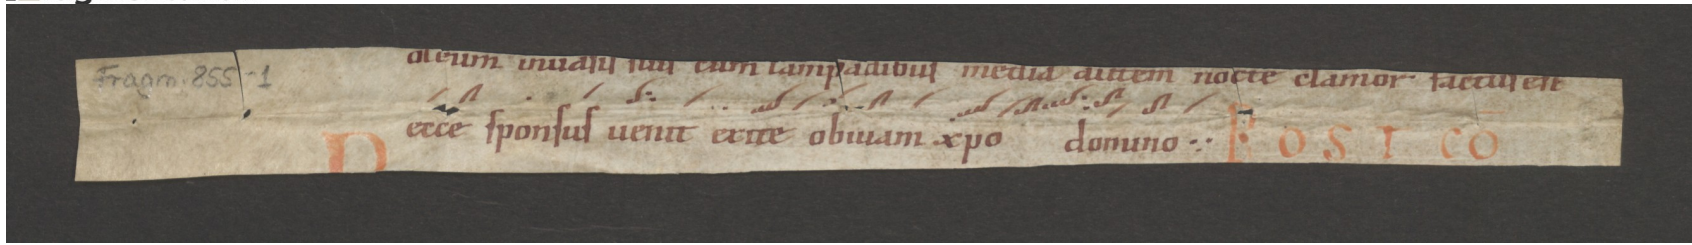 Fragm. 855-1
oleum in uasis suis cum lampadibus media autem nocte clamor factus est
ecce sponsus uenit exite obuiam xpo domino
POST CŌ
D